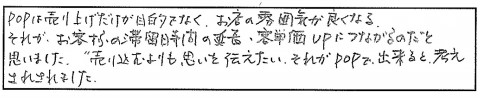 POPは売り上げだけが目的でなく、お店の雰囲気が良くなる。
それが、お客さんの滞留時間の改善・客単価UPにつながるのだと
思いました。“売り込むよりも思いを伝えたい、それがPOPで、出来ると、考え
されました。